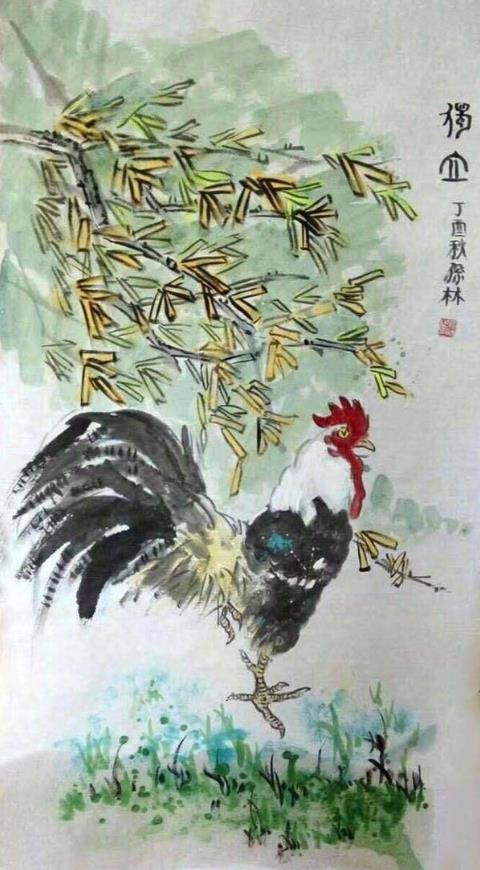 獨立 丁酉秋孫林